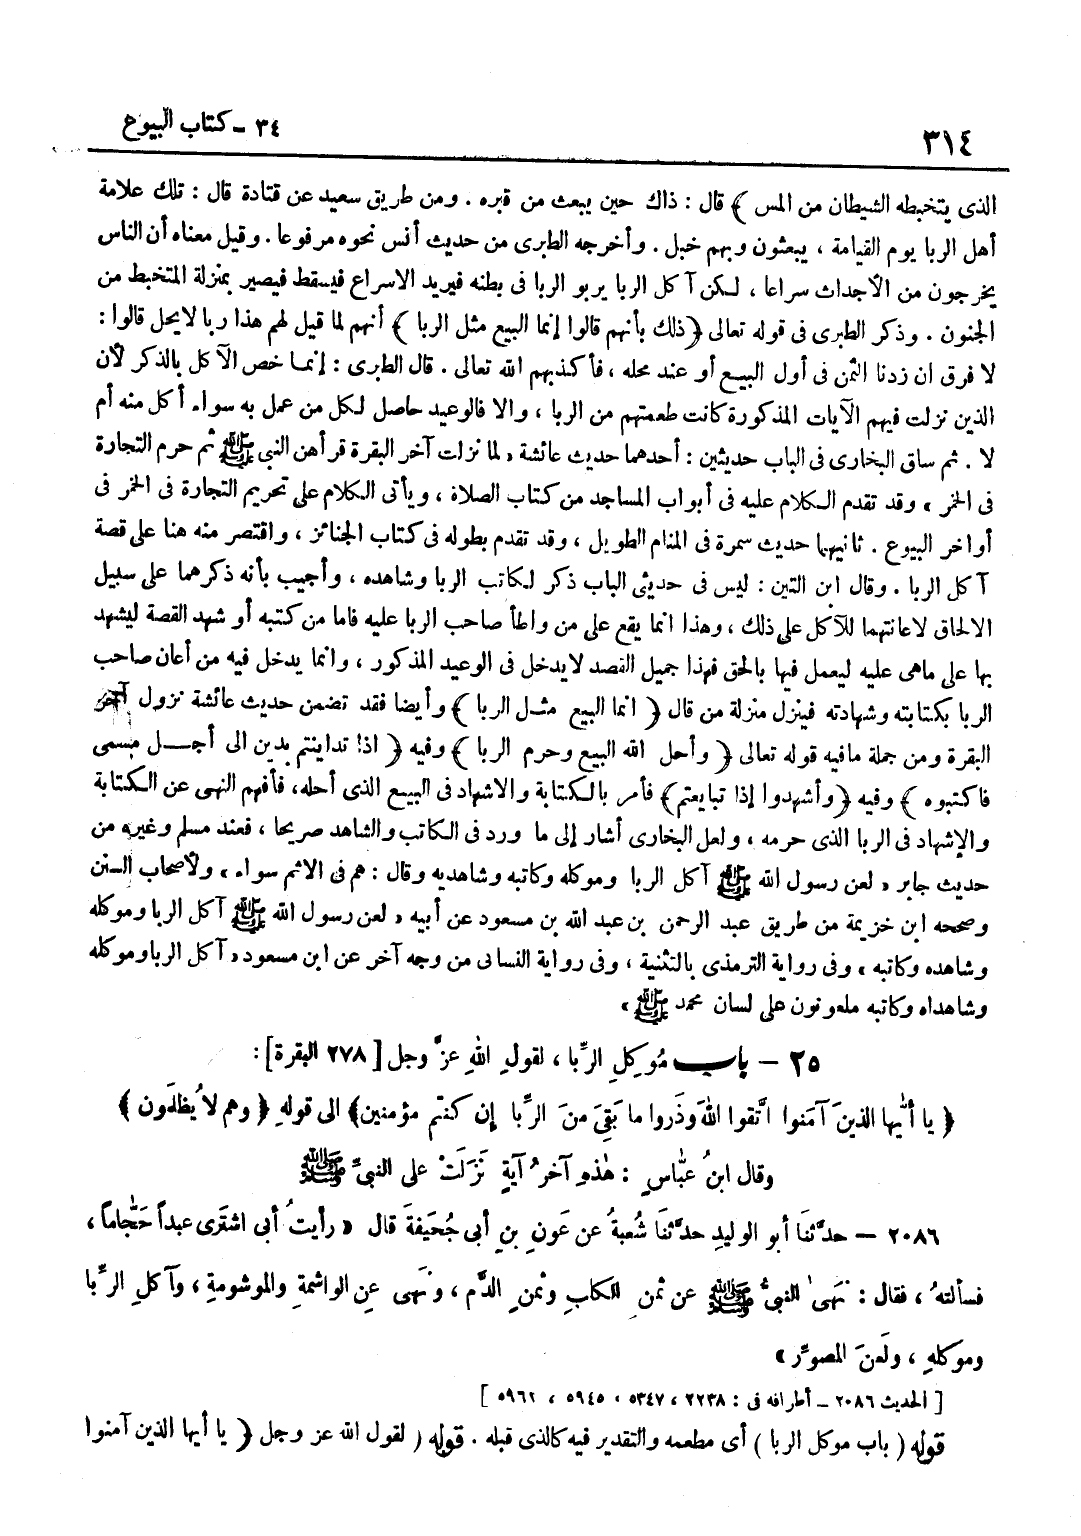 ٣١٤
٣٤ - كتاب البيوع
الذى يتخبطه الشيطان من المس ﴾ قال : ذاك حين يبعث من قبره . ومن طريق سعيد عن قتادة قال : تلك علامة
أهل الربا يوم القيامة ، يبعثون وبهم خبل . وأخرجه الطبرى من حديث أنس نحوه مرفوعا . وقيل معناه أن الناس
يخرجون من الأجداث سراعا ، لكن آكل الربا يربو الربا فى بطنه فيريد الاسراع فيسقط فيصير بمنزلة المتخبط من
الجنون . وذكر الطبرى فى قوله تعالى ﴿ذلك بأنهم قالوا إنما البيع مثل الربا ﴾ أنهم لما قيل لهم هذا ربا لايحل قالوا :
لا فرق ان زدنا الثمن فى أول البيع أو عند محله ، فأكذبهم الله تعالى . قال الطبرى : إنما خص الآكل بالذكر لأن
الذين نزلت فيهم الآيات المذكورة كانت طعمتهم من الربا ، والا فالوعيد حاصل لكل من عمل به سواء أكل منه أم
لا . ثم ساق البخارى فى الباب حديثين : أحدهما حديث عائشة « لما نزلت آخر البقرة قرأهن النبى ﷺ ثم حرم التجارة
فى الخمر » وقد تقدم الكلام عليه فى أبواب المساجد من كتاب الصلاة ، ويأتى الكلام على تحريم التجارة فى الخمر فى
أواخر البيوع . ثانيهما حديث سمرة فى المنام الطويل ، وقد تقدم بطوله فى كتاب الجنائز ، واقتصر منه هنا على قصة
آكل الربا . وقال ابن التين : ليس فى حديثى الباب ذكر لكاتب الربا وشاهده ، وأجيب بأنه ذكرهما على سبيل
الالحاق لاعانتهما للآكل على ذلك ، وهذا انما يقع على من واطأ صاحب الربا عليه فاما من كتبه أو شهد القصة ليشهد
بها على ماهى عليه ليعمل فيها بالحق فهذا جميل القصد لايدخل فى الوعيد المذكور ، وانما يدخل فيه من أعان صاحب
الربا بكتابته وشهادته فينزل منزلة من قال ﴿ انما البيع مثل الربا ﴾ وأيضا فقد تضمن حديث عائشة نزول آخر
البقرة ومن جملة مافيه قوله تعالى ﴿ وأحل الله البيع وحرم الربا ﴾ وفيه ﴿ اذا تداينتم بدين الى أجل مسمى
فاكتبوه ﴾ وفيه ﴿ وأشهدوا إذا تبايعتم﴾ فأمر بالكتابة والاشهاد فى البيع الذى أحله، فأفهم النهى عن الكتابة
والإشهاد فى الربا الذى حرمه ، ولعل البخارى أشار إلى ما ورد فى الكاتب والشاهد صريحا ، فعند مسلم وغيره من
حديث جابر « لعن رسول الله ﷺ آكل الربا وموكله وكاتبه وشاهديه وقال : هم فى الاثم سواء » ولأصحاب السنن
وصححه ابن خزيمة من طريق عبد الرحمن بن عبد الله بن مسعود عن أبيه « لعن رسول الله ﷺ آكل الربا وموكله
وشاهده وكاتبه » وفى رواية الترمذى بالتثنية ، وفى رواية النسائى من وجه آخر عن ابن مسعود « آكل الربا وموكله
وشاهداه وكاتبه ملعونون على لسان محمد ﷺ »
٢٥ - باب مُوكِلِ الرِّبا ، لقولِ اللهِ عزَّ وجل [ ٢٧٨ البقرة ] :
﴿ يا أيُّها الذينَ آمَنوا اتَّقوا اللهَ وذَروا ما بَقِيَ منَ الرِّبا إن كنتم مؤمنين﴾ الى قولهِ ﴿ وهم لا يُظلَمون ﴾
وقال ابنُ عبّاسٍ : هٰذهِ آخرُ آيةٍ نَزَلَتْ على النبىِّ ﷺ
٢٠٨٦ - حدَّثنَا أبو الوليدِ حدَّثنَا شُعبةُ عن عَونِ بنِ أبى جُحَيفةَ قال « رأيتُ أبى اشتَرى عبداً حَجّاماً ،
فسألتهُ ، فقال : نَهىٰ النبىُّ ﷺ عن ثمنِ الكلبِ وثمنِ الدَّمِ ، ونَهى عنِ الواشمةِ والموشومةِ ، وآكلِ الرِّبا
وموكلهِ ، ولَعنَ المصوِّر »
[ الحديث ٢٠٨٦ - أطرافه فى : ٢٢٣٨ ، ٥٣٤٧ ، ٥٩٤٥ ، ٥٩٦٢ ]
قوله ( باب موكل الربا ) أى مطعمه والتقدير فيه كالذى قبله . قوله ( لقول الله عز وجل ﴿ يا أيها الذين آمنوا